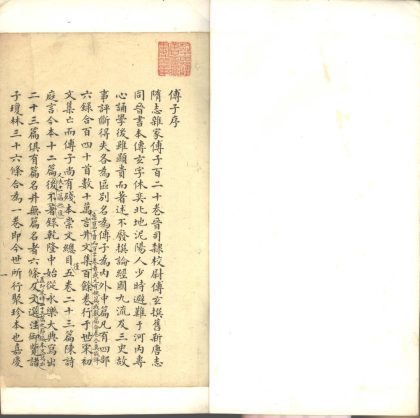 傅子序
隋志雜家傅子百二十卷晉司隸校尉傅玄撰舊新唐志
同晉書本傅玄字休奕北地泥陽人少時避難于河內專
心誦學後雖顯貴而著述不廢撰論經國九流及三史故
事評斷得失各為區別名為傅子為內外中篇凡有四部
六錄合百四十首數十萬言并文集百餘卷行于世宋初
文集亡而傅子尚有殘本崇文總目五卷二十三篇陳詩
庭言今本十二篇後不著錄乾隆中始從永樂大典寫出
二十三篇俱有篇名并無篇名者六條又文選注御覽諸
子瓊林三十六條合為一卷即今世所行聚珍本也嘉慶
一